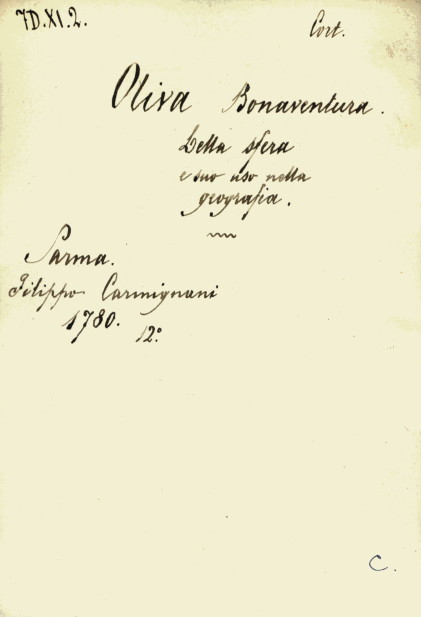 7D.XI.2.
Cort.
Oliva Bonaventura.
Della sfera
e suo uso nella
geografia.
Parma.
Filippo Carmignani
1780. 12º
C.